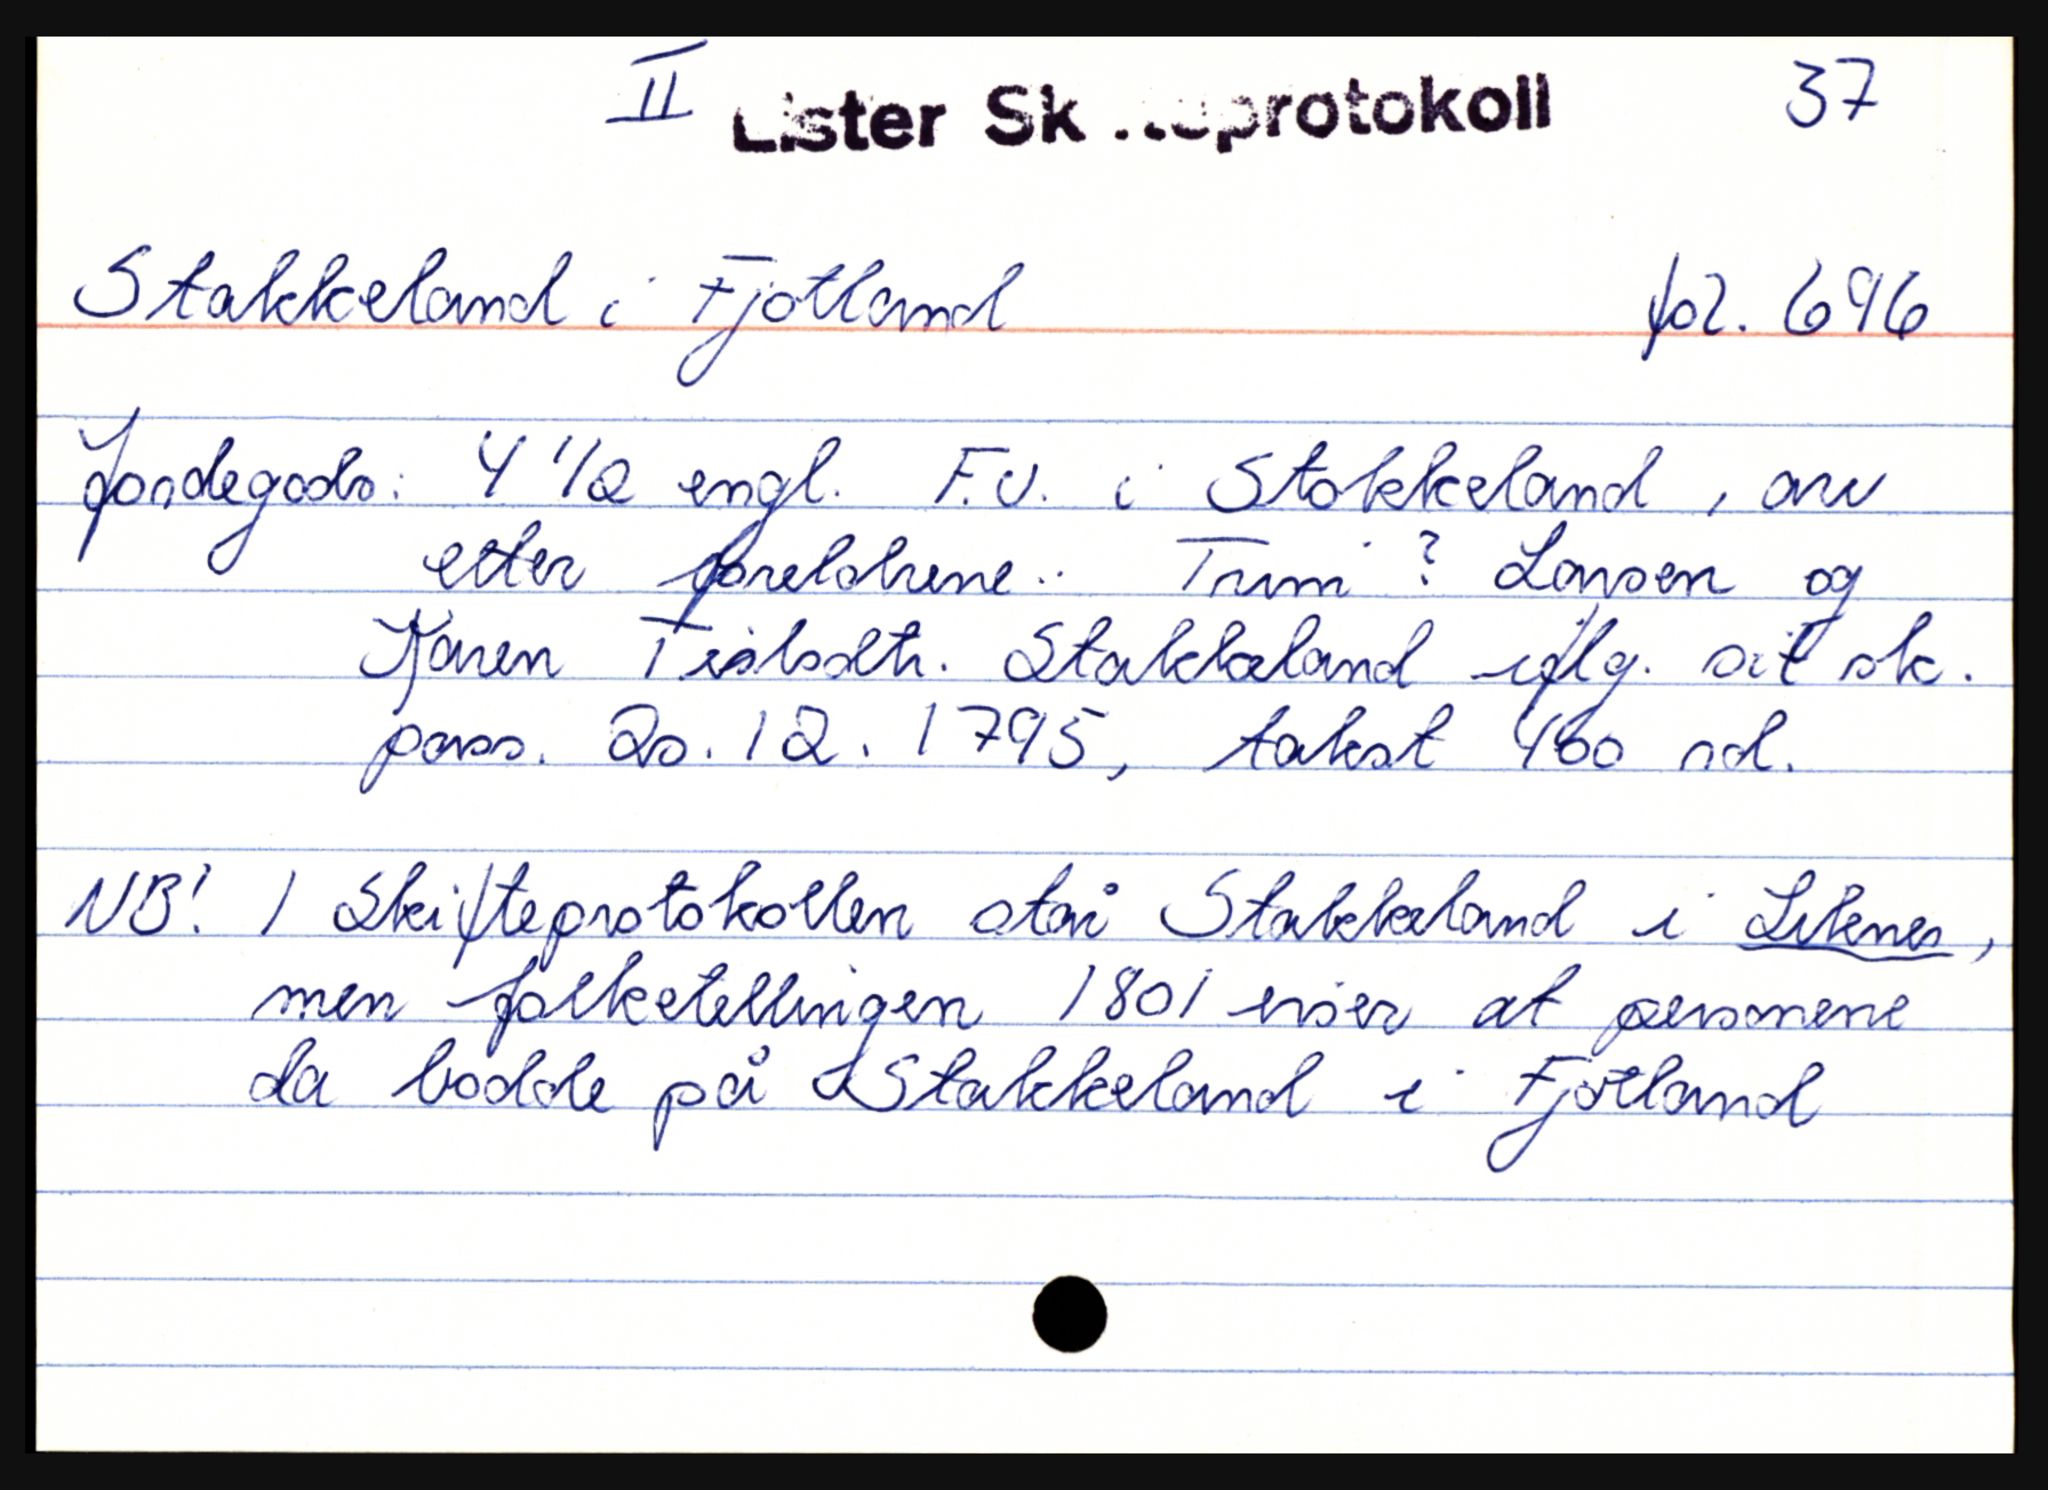 II Lister Skifteprotokoll 37
Stakkeland i Fjotland fol. 696
Jordegods: 4 1/2 engl. F.v. i Stokkeland, arv
etter foreldrene: Trini ? Larsen og
Karen Tislsdtr. Stakkeland iflg. sit sk.
pass. 20.12.1795, takst 460 rd.
NB! I Skifteprotokollen står Stakkeland i Liknes,
men folketellingen 1801 viser at personene
da bodde på Stakkeland i Fjotland